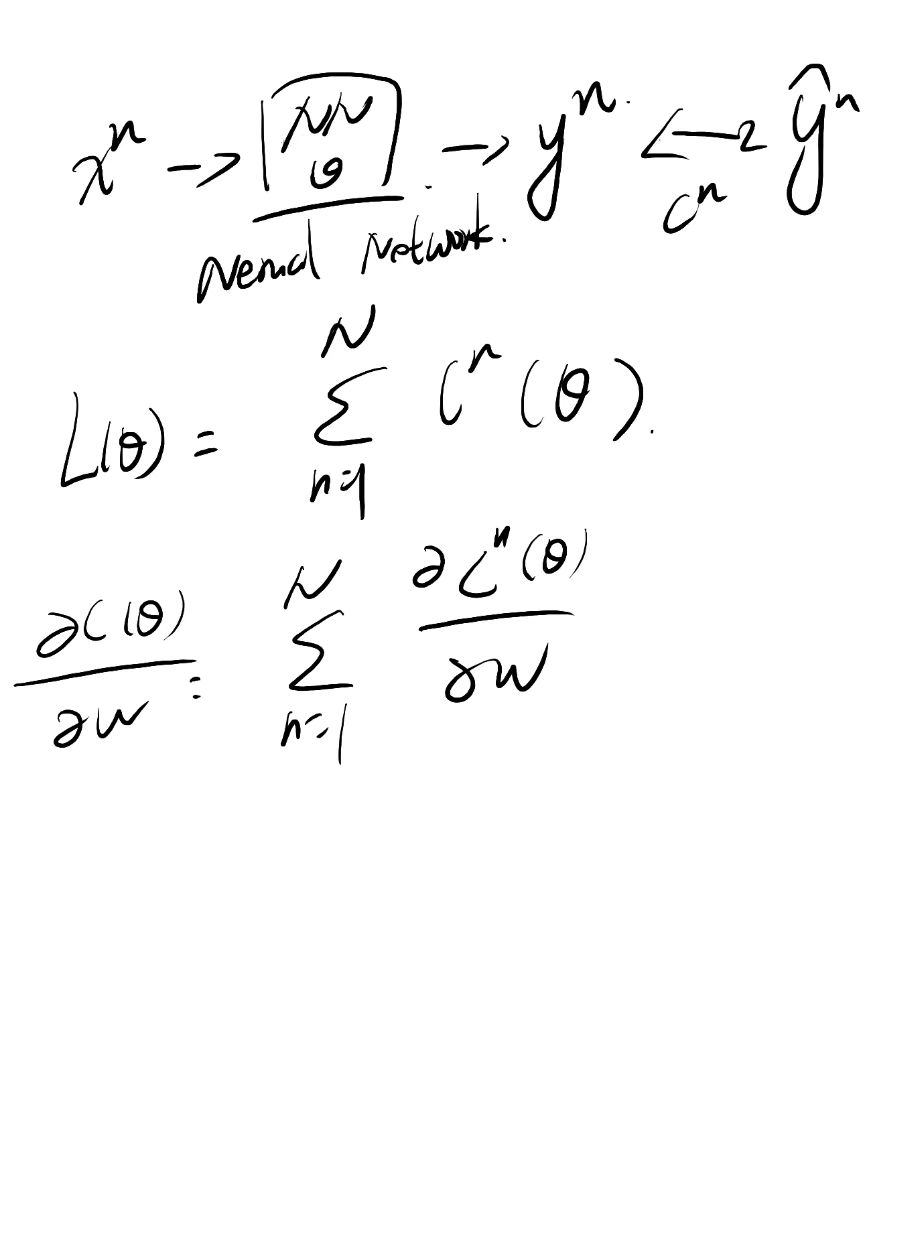 xⁿ → NN θ → yⁿ ↔ ŷⁿ
Cⁿ
Neural Network.
L(θ) = ∑ₙ₌₁ᴺ Cⁿ(θ).
∂C(θ)/∂w = ∑ₙ₌₁ᴺ ∂Cⁿ(θ)/∂w